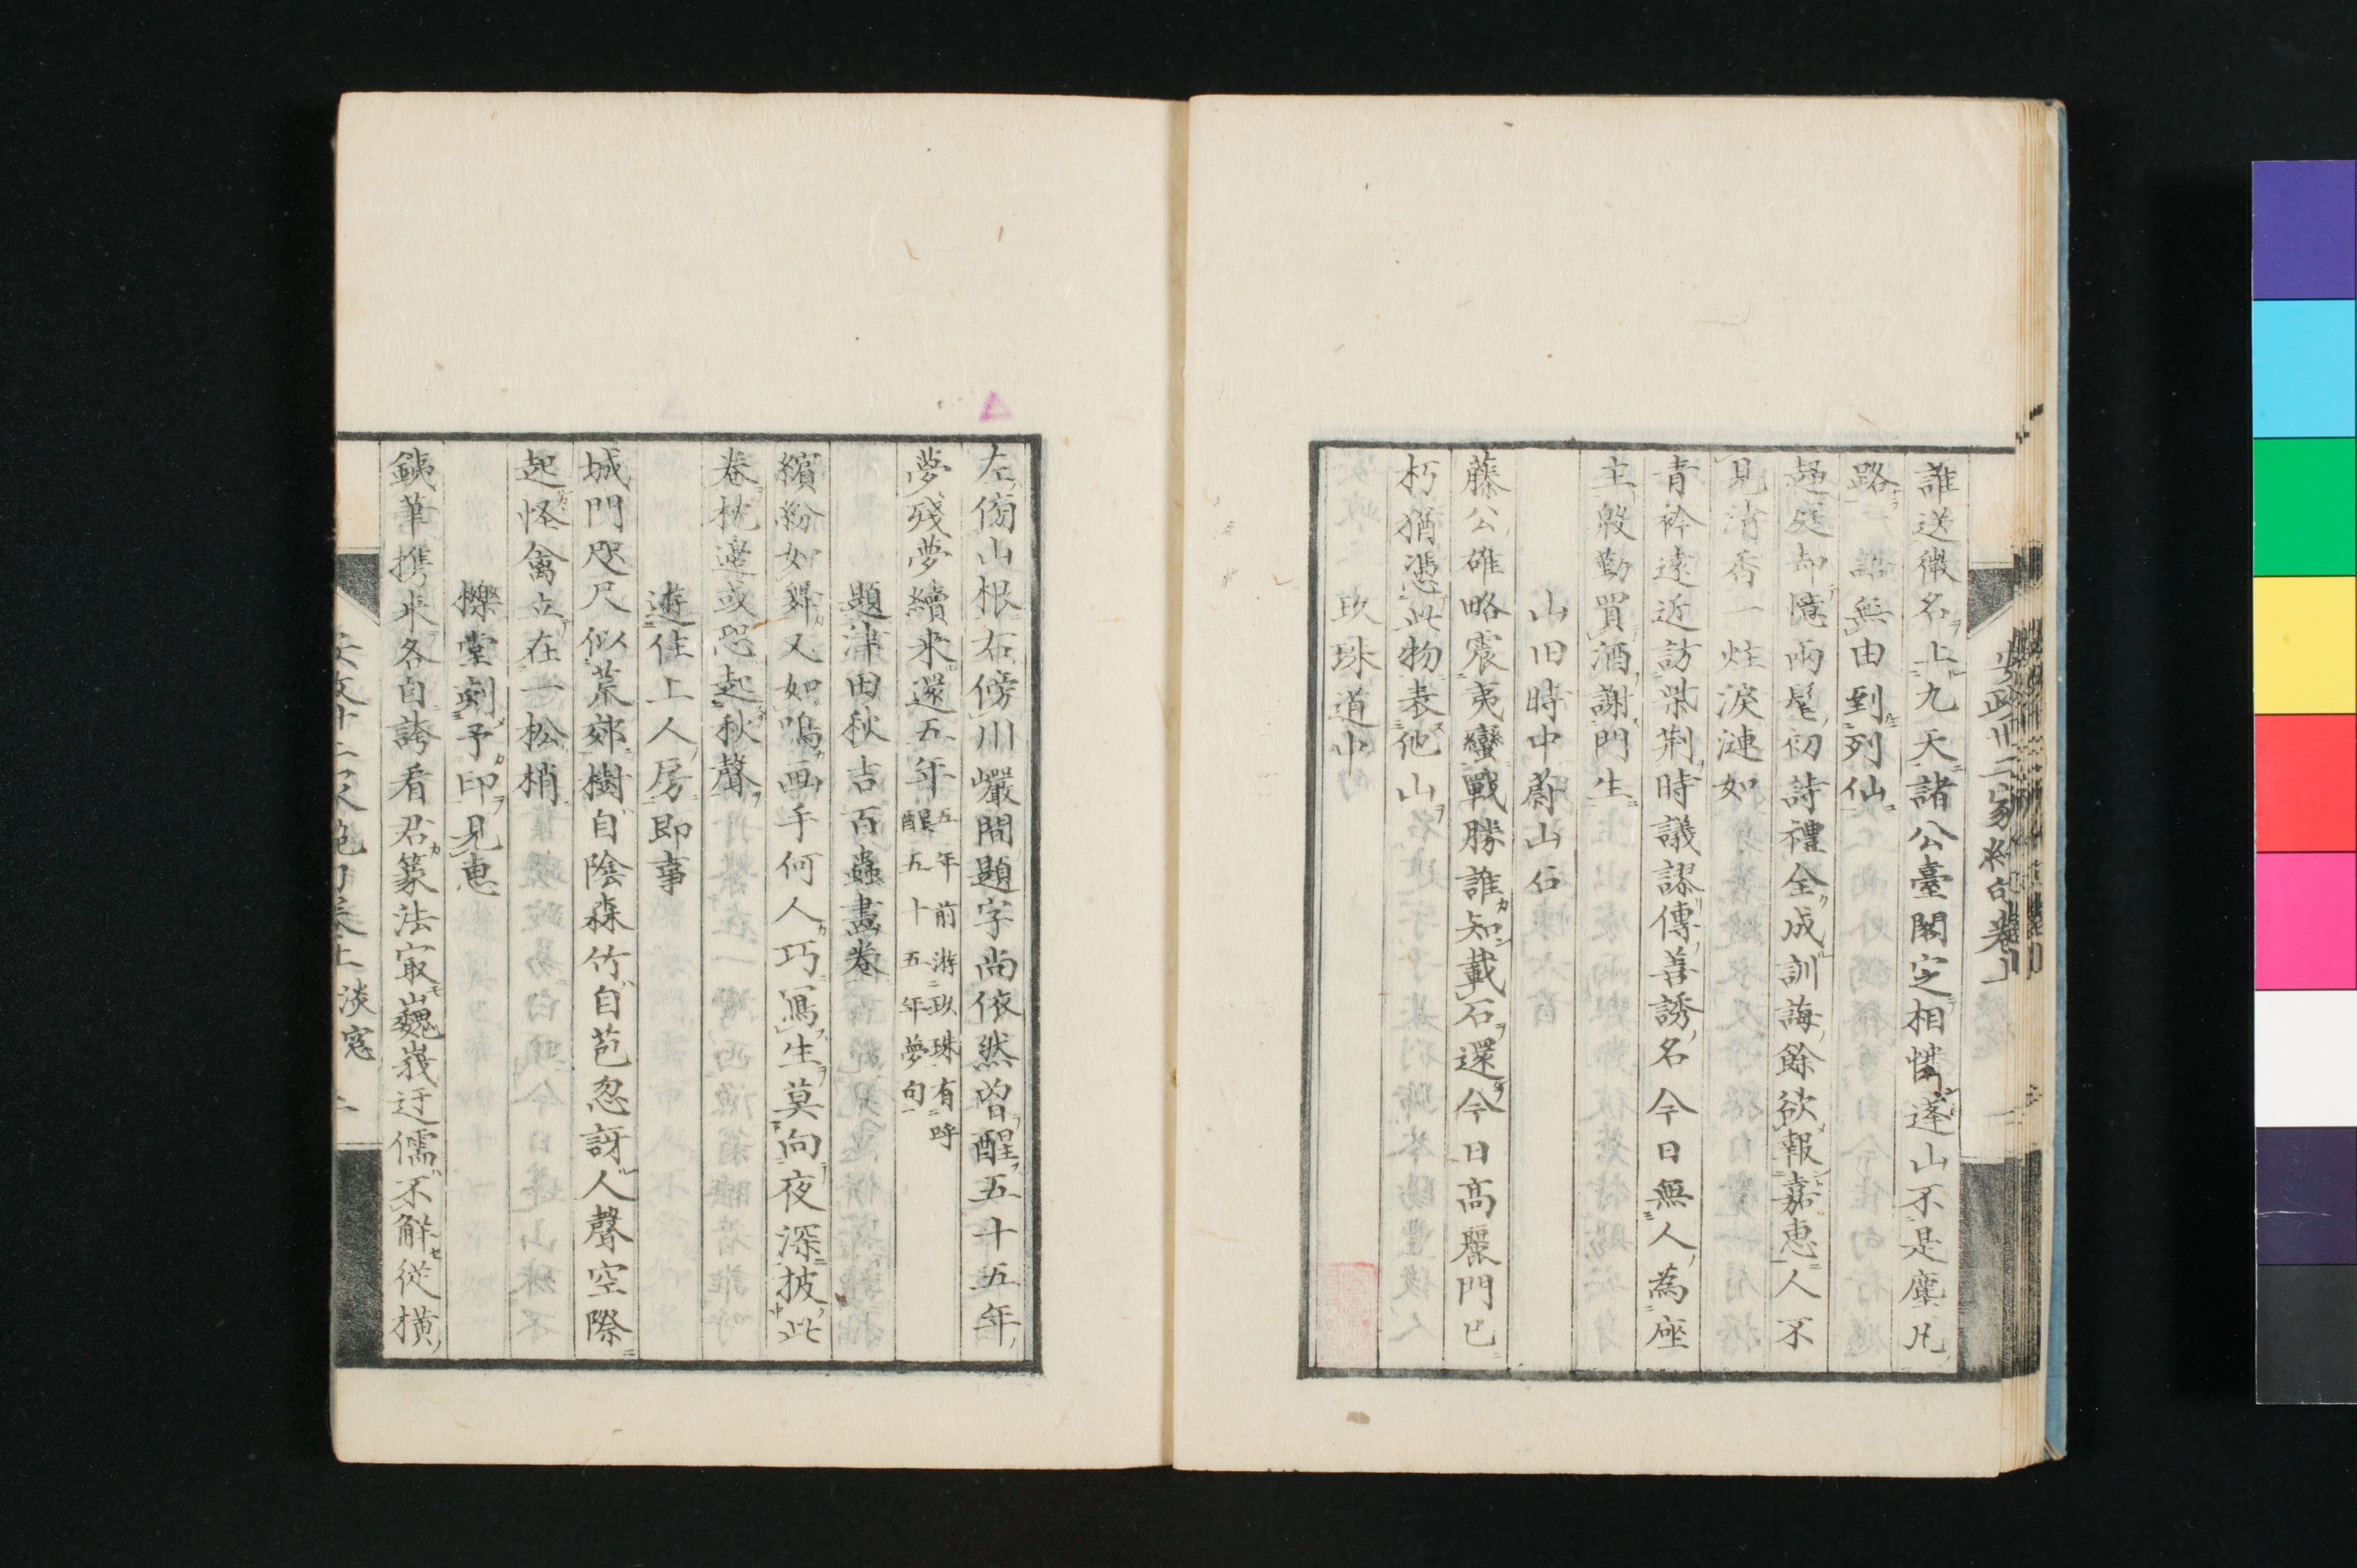 誰送微名上九天諸公臺閣定相憐蓬山不是塵凡
路無由到列仙
趨庭却憶兩髦初詩禮全成訓誨餘欲報嘉恵人不
見清香一炷淚漣如
青衿遠近訪柴荆時議謬傳善誘名今日無人為座
主殷勤買酒謝門生
山旧時中蔚山石
藤公雄略震夷蠻戰勝誰知載石還今日高麗門已
朽猶憑此物表他山
玖珠道中
左傍山根右傍川巖間題字尚依然曽醒五十五年
夢殘夢續来還五年
五年前游玖珠有呼
醒五十五年夢句
題津田秋吉百蟲畫卷
繽紛如舞又如鳴画手何人巧寫生莫向夜深披此
卷枕邊或恐起秋聲
遊住上人房即事
城門咫尺似荒郊樹自陰森竹自苞忽訝人聲空際
起怪禽立在一松梢
櫟堂刻予印見恵
銕筆携来各自誇看君篆法㝡巍峩迂儒不解従横